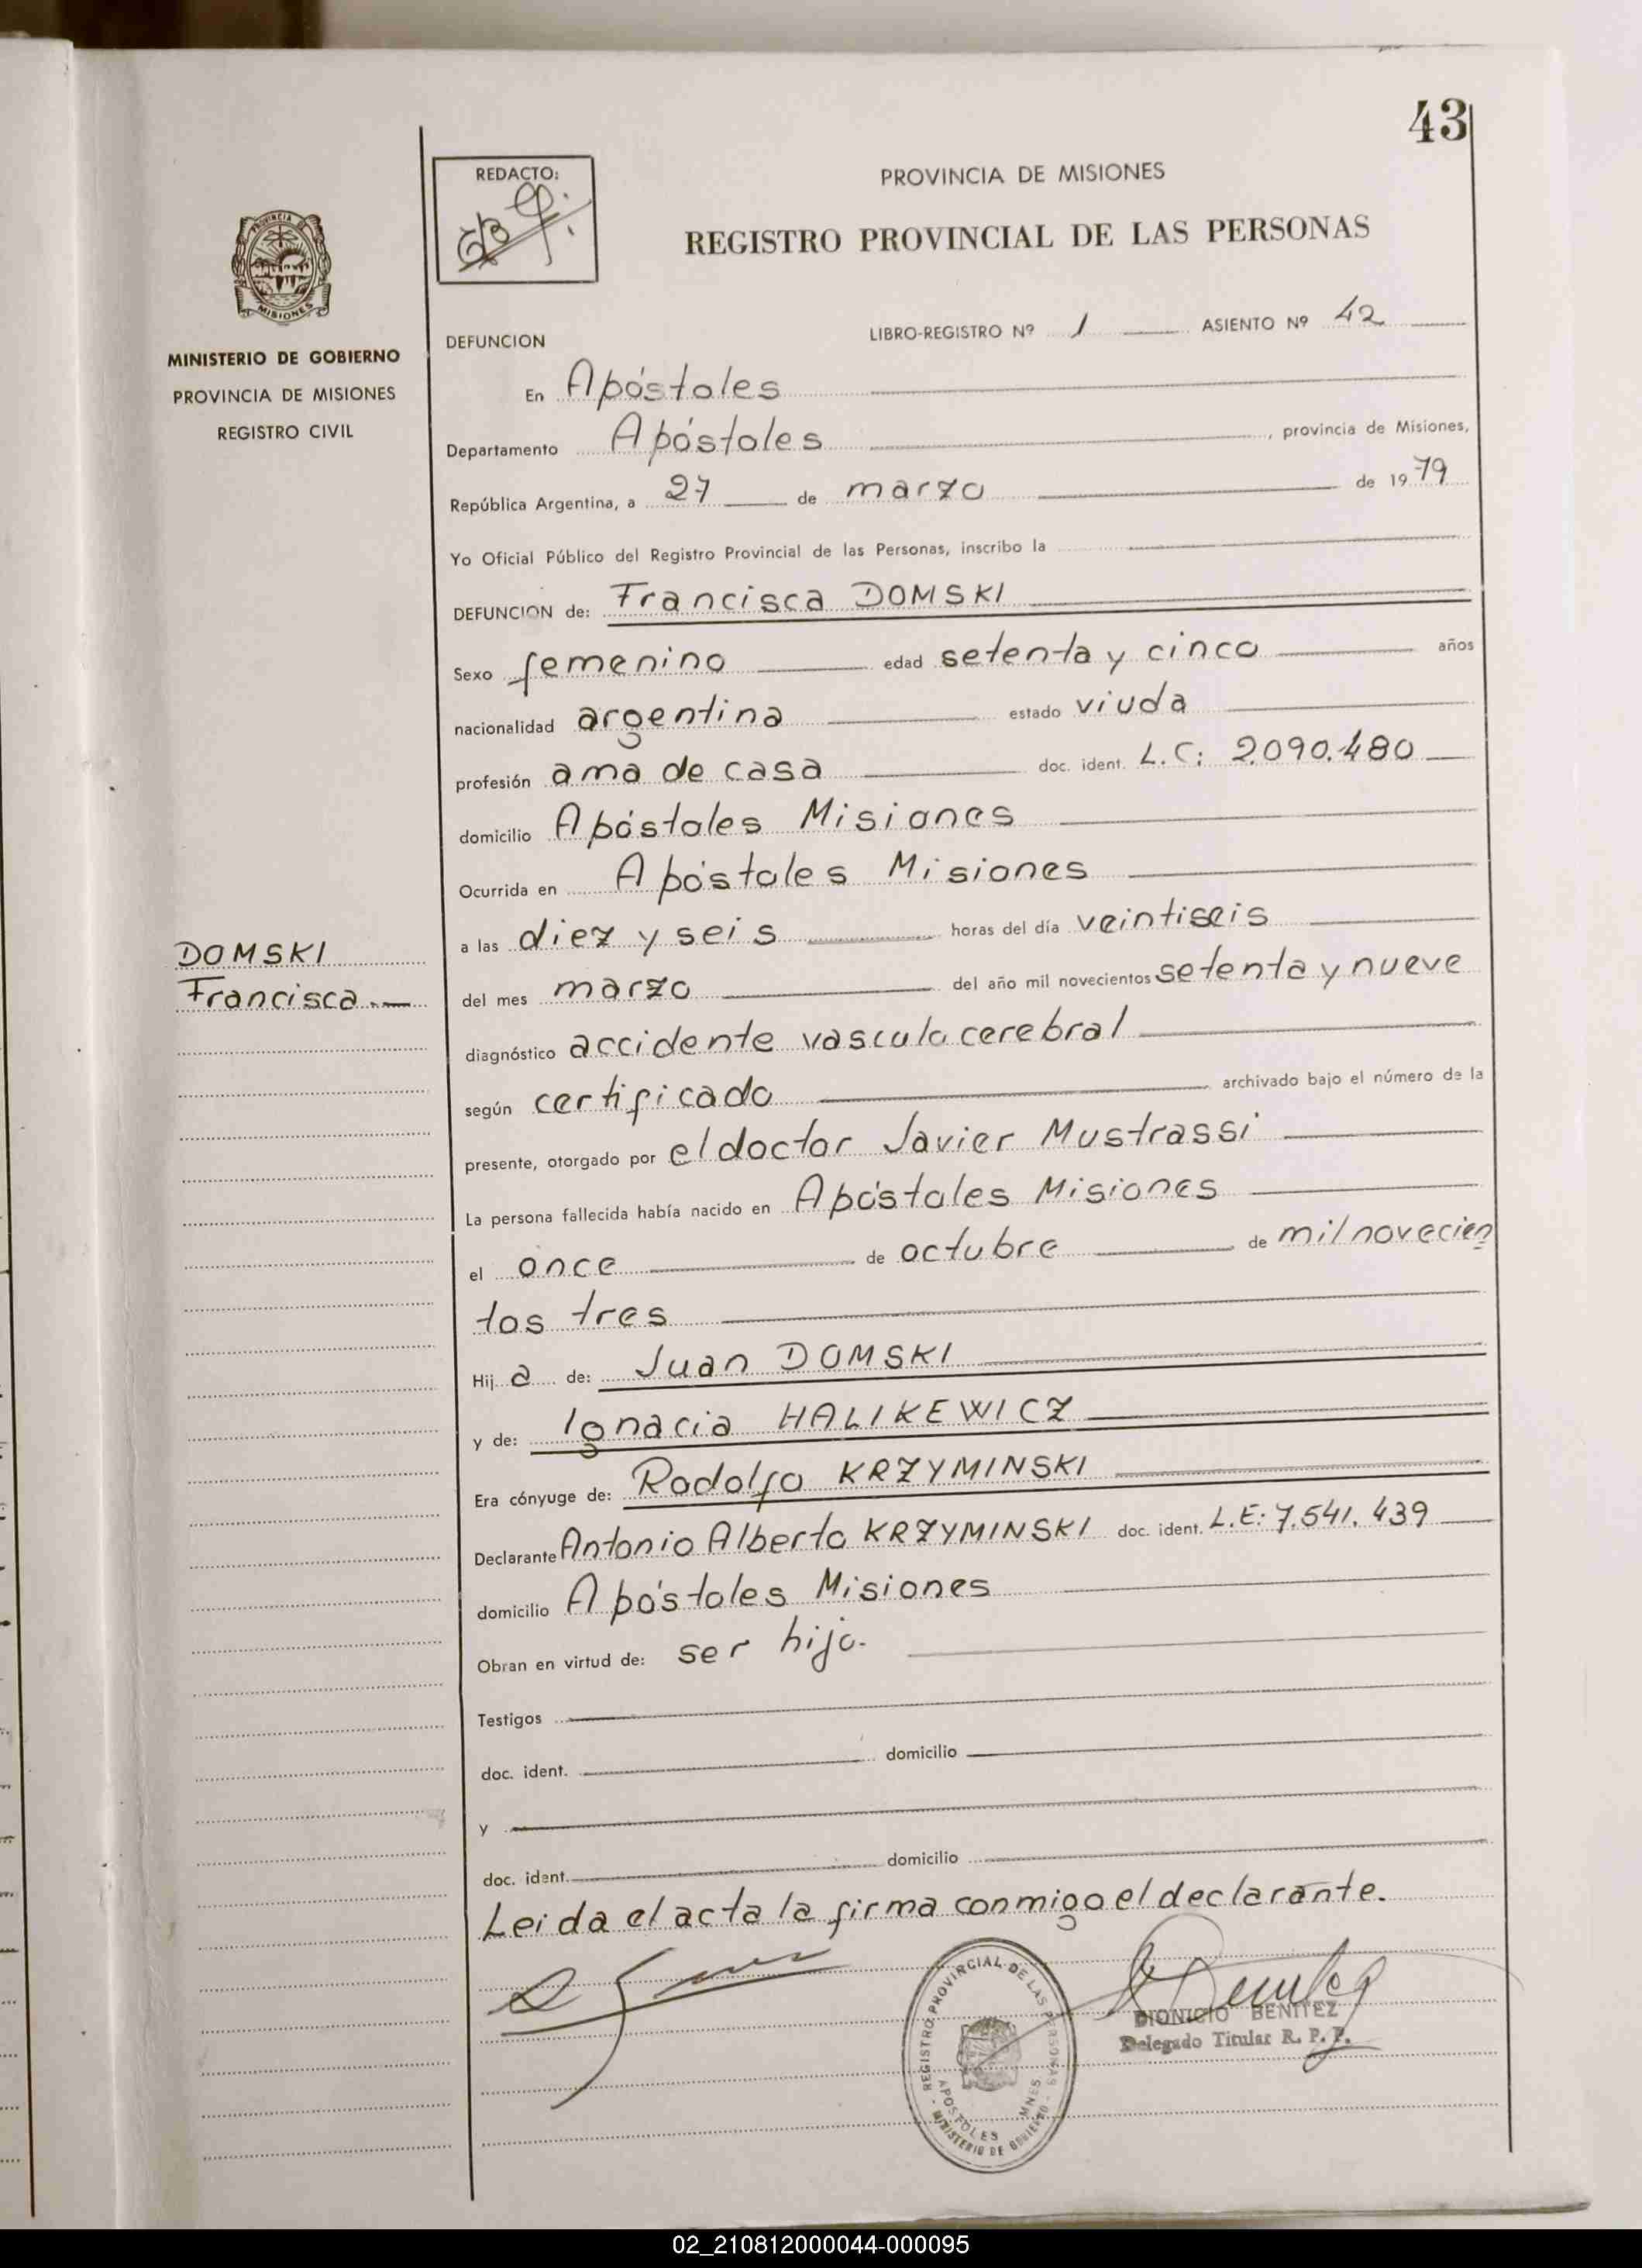 43
REDACTO:
PROVINCIA DE MISIONES
REGISTRO PROVINCIAL DE LAS PERSONAS
PROVINCIA DE
MISIONES
MINISTERIO DE GOBIERNO
PROVINCIA DE MISIONES
REGISTRO CIVIL
DEFUNCION LIBRO-REGISTRO Nº 1 ASIENTO Nº 42
En Apóstoles
Departamento Apóstoles, provincia de Misiones,
República Argentina, a 27 de marzo de 1979
Yo Oficial Público del Registro Provincial de las Personas, inscribo la
DEFUNCION de: Francisca DOMSKI
Sexo femenino edad setenta y cinco años
nacionalidad argentina estado viuda
profesión ama de casa doc. ident. L.C: 2.090.480
domicilio Apóstoles Misiones
Ocurrida en Apóstoles Misiones
a las diez y seis horas del día veintiseis
DOMSKI
Francisca.-
del mes marzo del año mil novecientos setenta y nueve
diagnóstico accidente vasculo cerebral
según certificado archivado bajo el número de la
presente, otorgado por el doctor Javier Mustrassi
La persona fallecida había nacido en Apóstoles Misiones
el once de octubre de mil novecien
tos tres
Hija de: Juan DOMSKI
y de: Ignacia HALIKEWICZ
Era cónyuge de: Rodolfo KRZYMINSKI
Declarante Antonio Alberto KRZYMINSKI doc. ident. L.E: 7.541.439
domicilio Apóstoles Misiones
Obran en virtud de: ser hijo.
Testigos
doc. ident. domicilio
y
doc. ident. domicilio
Leida el acta la firma conmigo el declarante.
REGISTRO PROVINCIAL DE LAS PERSONAS
APOSTOLES MNES
MINISTERIO DE GOBIERNO
DIONICIO BENITEZ
Delegado Titular R. P. P.
02_210812000044-000095